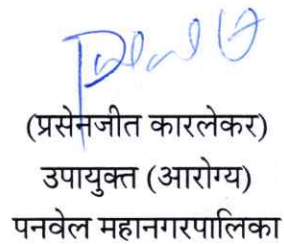 (प्रसेनजीत कारलेकर)
उपायुक्त (आरोग्य)
पनवेल महानगरपालिका